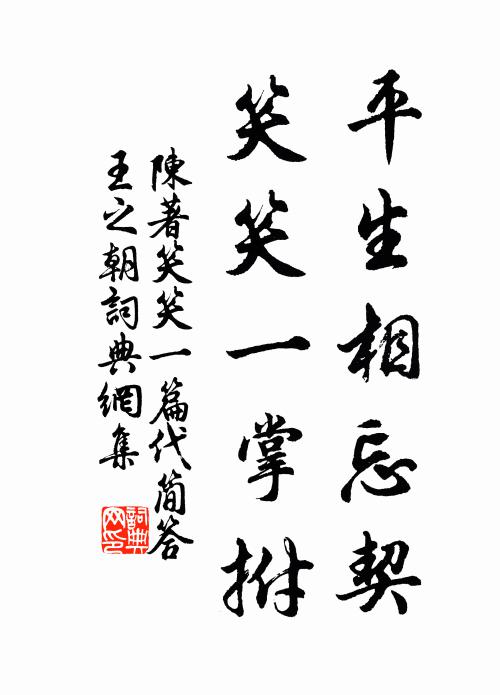 平生相忘契
笑笑一掌拊
陳著笑笑一篇代簡答
王之朝詞典網集
詞典
网印